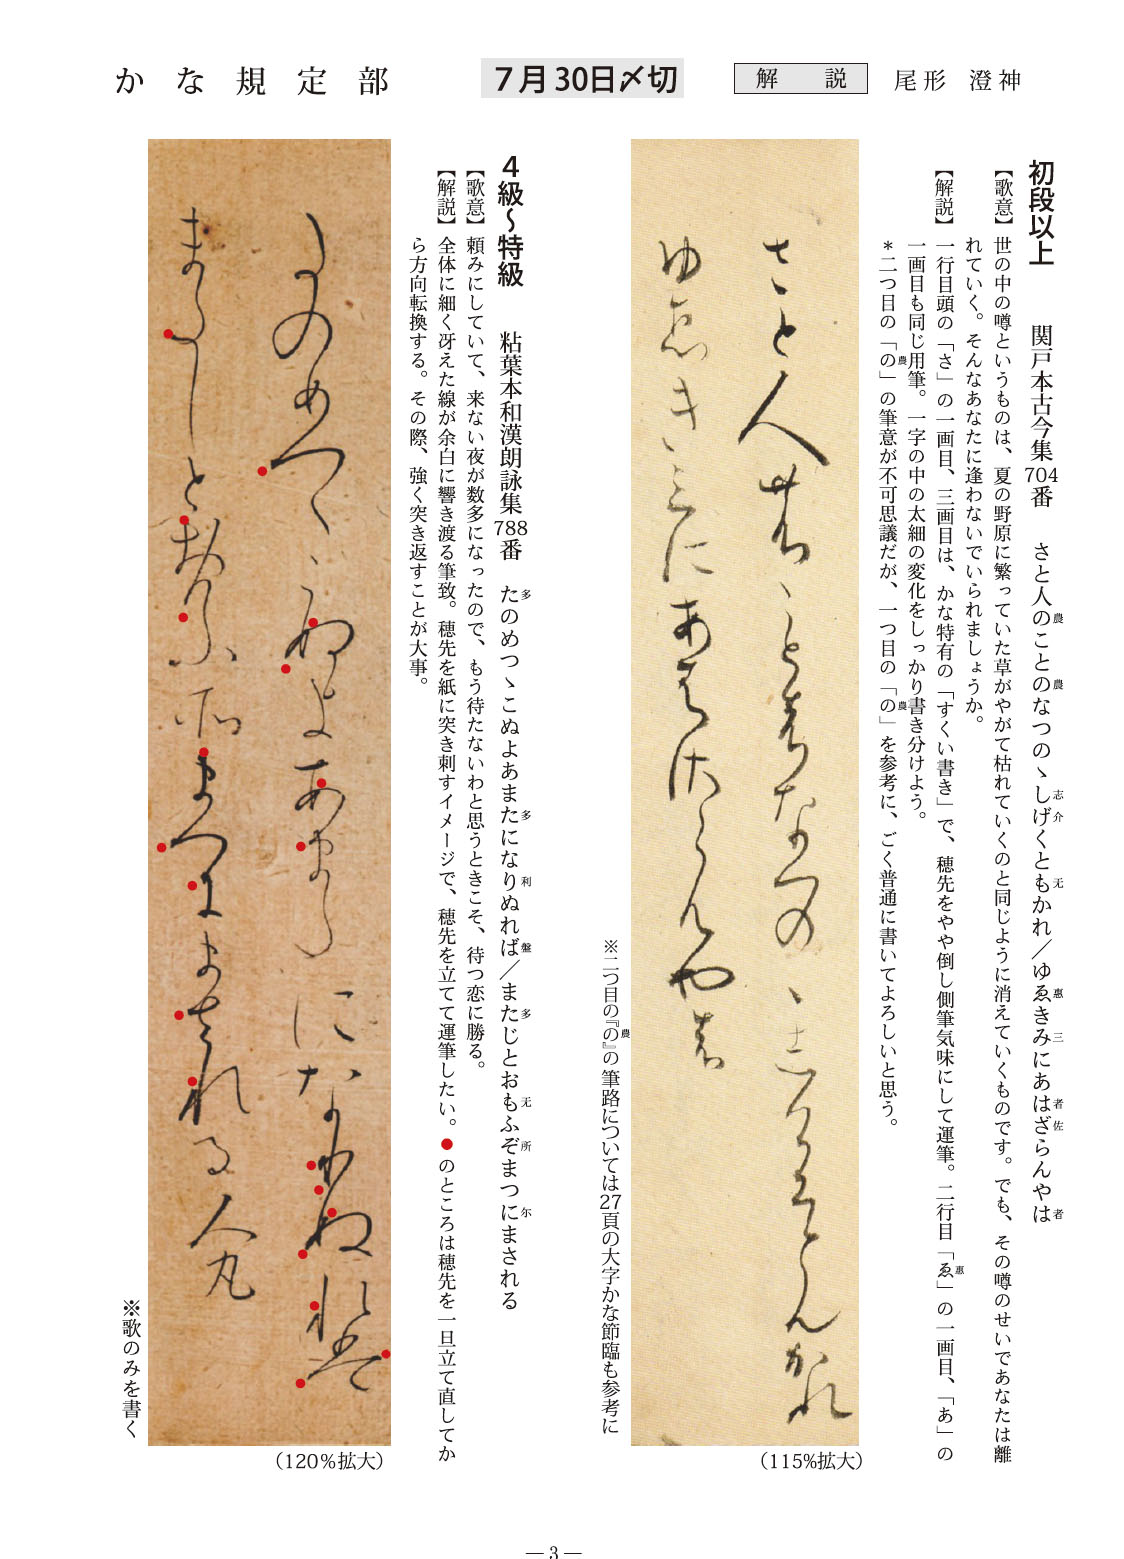 かな規定部
7月30日〆切
解説
尾形 澄神
初段以上 関戸本古今集704番 さと人のことのなつのゝしげくともかれ／ゆゑきみにあはざらんやは
農 農 志 介 无 惠 三 者 佐 者
【歌意】世の中の噂というものは、夏の野原に繁っていた草がやがて枯れていくのと同じように消えていくものです。でも、その噂のせいであなたは離
れていく。そんなあなたに逢わないでいられましょうか。
【解説】一行目頭の「さ」の一画目、三画目は、かな特有の「すくい書き」で、穂先をやや倒し側筆気味にして運筆。二行目「ゑ」の一画目、「あ」の
惠
一画目も同じ用筆。一字の中の太細の変化をしっかり書き分けよう。
＊二つ目の「の」の筆意が不可思議だが、一つ目の「の」を参考に、ごく普通に書いてよろしいと思う。
農 農
さと人農こと農なつのゝ志介くと无かれ
ゆ惠き三にあ者佐らんや者
※二つ目の『の』の筆路については27頁の大字かな節臨も参考に
農
（115%拡大）
4級〜特級 粘葉本和漢朗詠集788番 たのめつゝこぬよあまたになりぬれば／またじとおもふぞまつにまされる
多 多 利 盤 多 无 所 尓
【歌意】頼みにしていて、来ない夜が数多になったので、もう待たないわと思うときこそ、待つ恋に勝る。
【解説】全体に細く冴えた線が余白に響き渡る筆致。穂先を紙に突き刺すイメージで、穂先を立てて運筆したい。●のところは穂先を一旦立て直してか
ら方向転換する。その際、強く突き返すことが大事。
多のめつゝこぬよあま多になりぬれ盤
ま多しとおもふ所まつ尓まされる人丸
（120%拡大）
※歌のみを書く
— 3 —